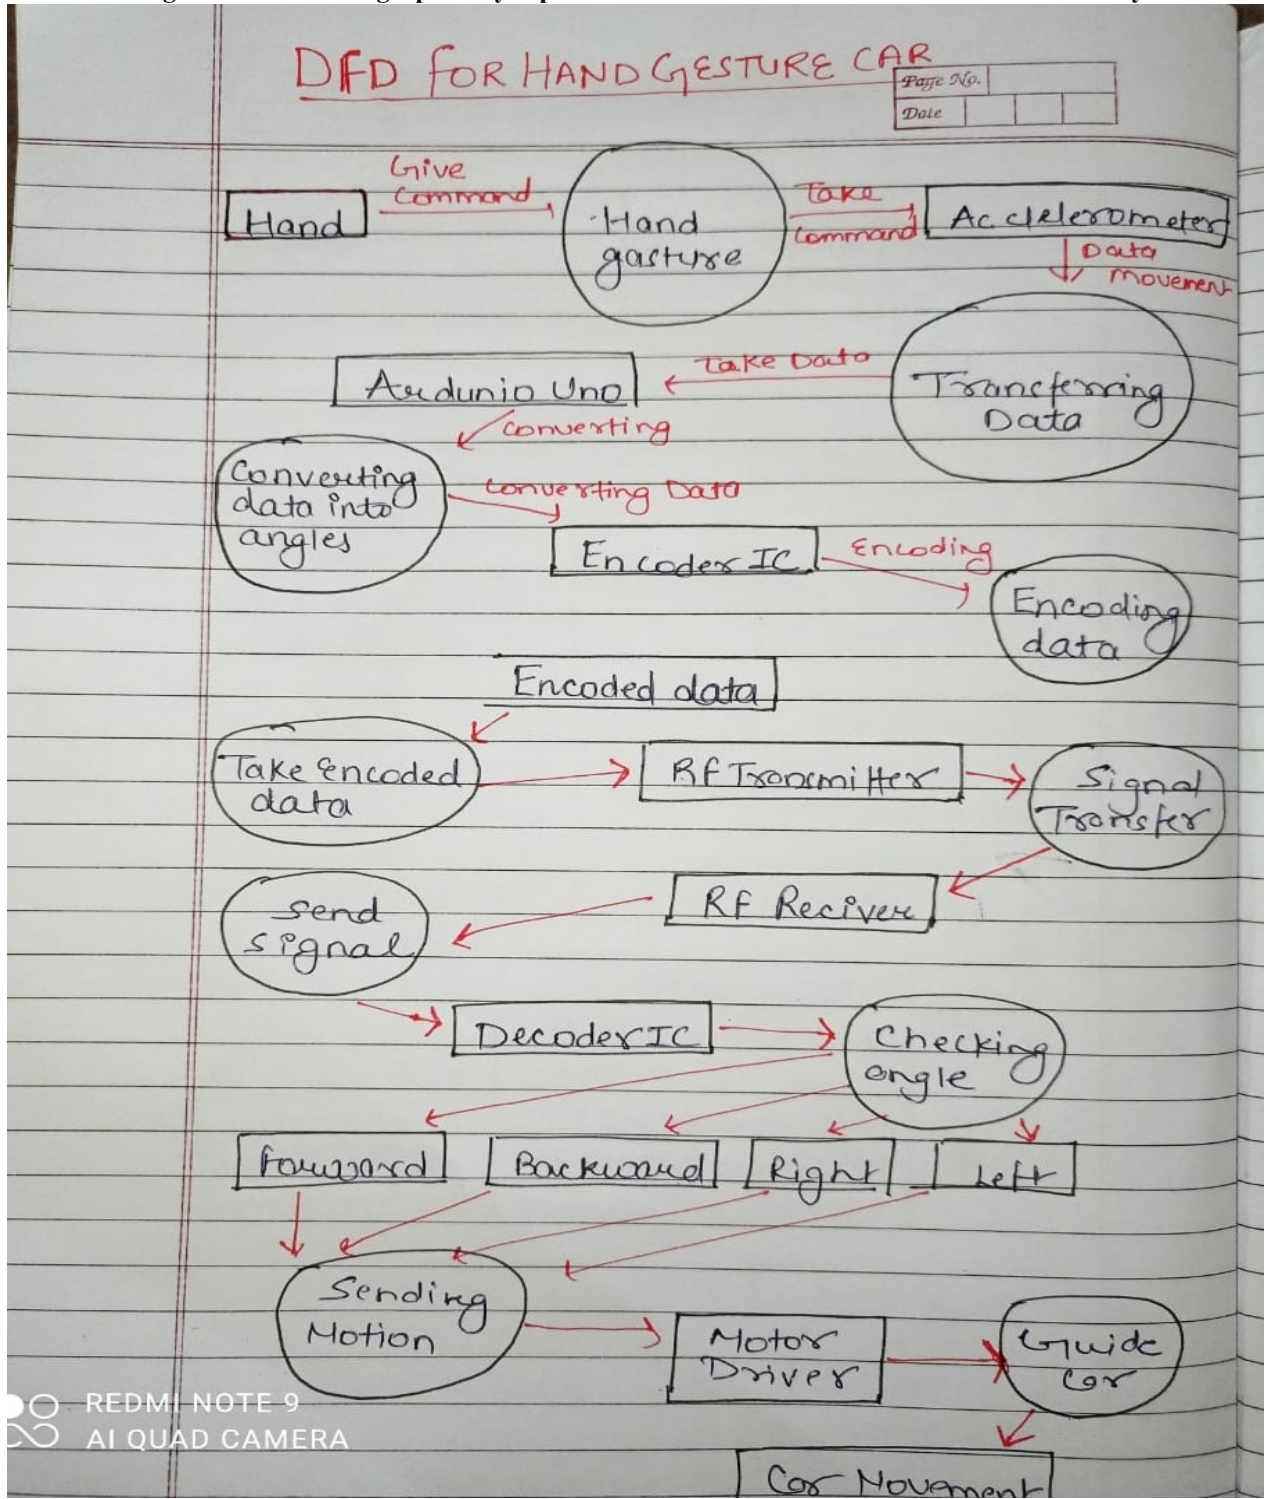 DFD FOR HAND GESTURE CAR
Page No.
Date
Give
Command
Hand
Hand
gasture
Take
Command
Acclelerometer
Data
Movement
Transferring
Data
Take Data
Ardunio Uno
Converting
Converting
data into
angles
Converting Data
Encoder IC
Encoding
Encoding
data
Encoded data
Take Encoded
data
RF Transmitter
Signal
Transfer
RF Reciver
Send
Signal
Decoder IC
Checking
angle
Forward
Backward
Right
Left
Sending
Motion
Motor
Driver
Guide
Car
Car Movement
REDMI NOTE 9
AI QUAD CAMERA